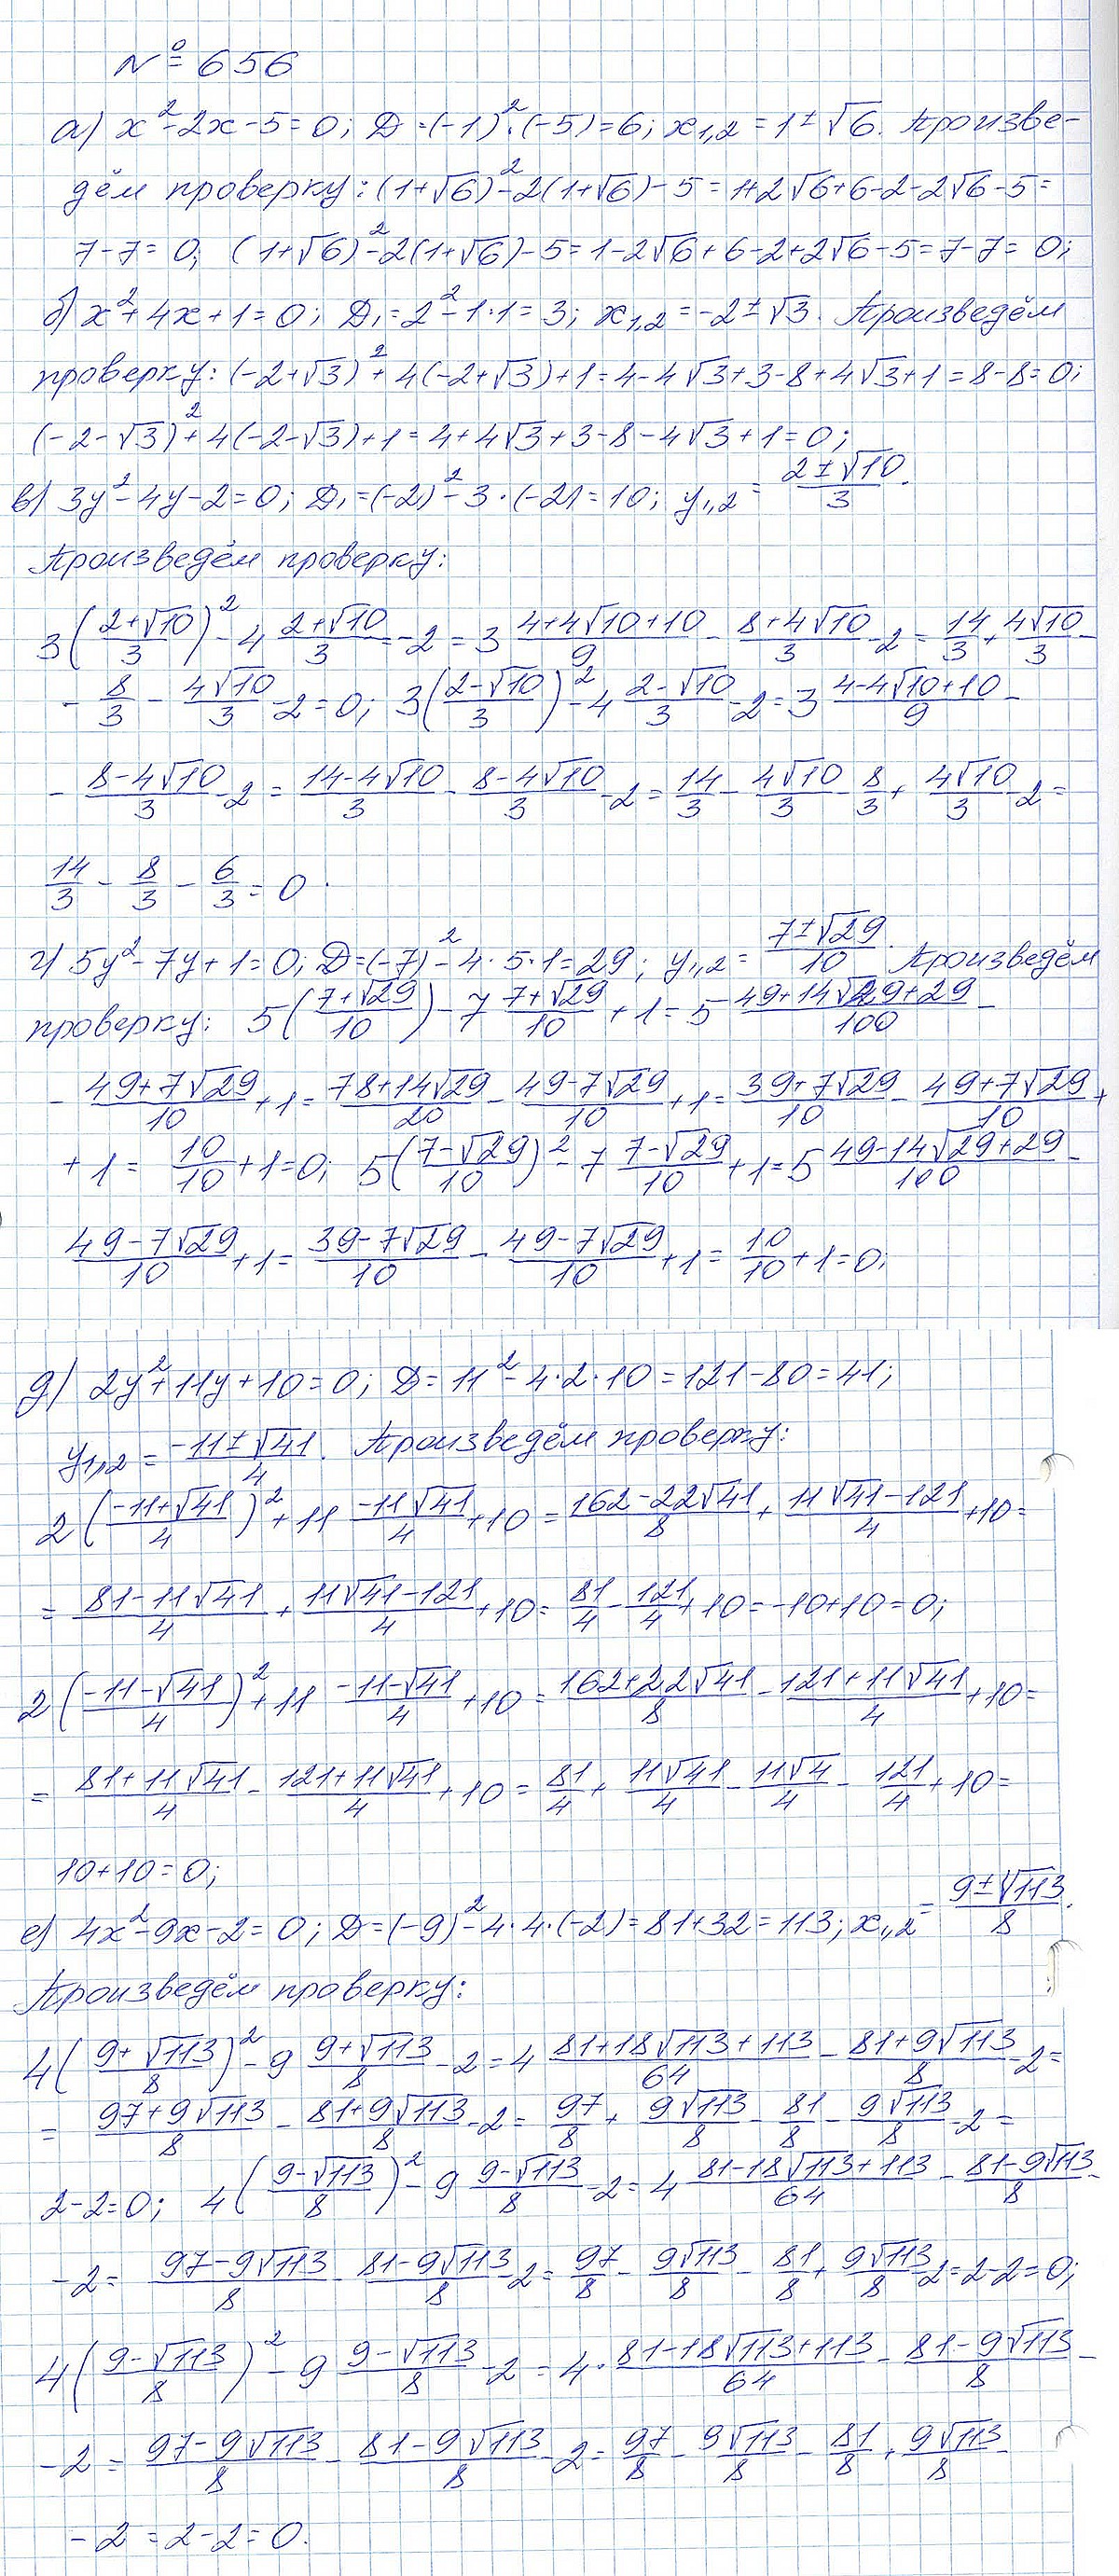 № 656
а) x² - 2x - 5 = 0; D = (-1)² · (-5) = 6; x₁,₂ = 1 ± √6. Произве-
дём проверку: (1+√6)² - 2(1+√6) - 5 = 1+2√6+6-2-2√6-5 =
7-7 = 0; (1+√6)² - 2(1+√6) - 5 = 1-2√6+6-2+2√6-5 = 7-7 = 0;
б) x² + 4x + 1 = 0; D₁ = 2² - 1·1 = 3; x₁,₂ = -2 ± √3. Произведём
проверку: (-2+√3)² + 4(-2+√3) + 1 = 4-4√3+3-8+4√3+1 = 8-8 = 0;
(-2-√3)² + 4(-2-√3) + 1 = 4+4√3+3-8-4√3+1 = 0;
в) 3y² - 4y - 2 = 0; D₁ = (-2)² - 3·(-2) = 10; y₁,₂ = (2±√10)/3.
Произведём проверку:
3((2+√10)/3)² - 4 (2+√10)/3 - 2 = 3 (4+4√10+10)/9 - (8+4√10)/3 - 2 = 14/3 + 4√10/3 -
- 8/3 - 4√10/3 - 2 = 0; 3((2-√10)/3)² - 4 (2-√10)/3 - 2 = 3 (4-4√10+10)/9 -
- (8-4√10)/3 - 2 = (14-4√10)/3 - (8-4√10)/3 - 2 = 14/3 - 4√10/3 - 8/3 + 4√10/3 - 2 =
14/3 - 8/3 - 6/3 = 0.
г) 5y² - 7y + 1 = 0; D = (-7)² - 4·5·1 = 29; y₁,₂ = (7±√29)/10. Произведём
проверку: 5((7+√29)/10) - 7 (7+√29)/10 + 1 = 5 (49+14√29+29)/100 -
- (49+7√29)/10 + 1 = (78+14√29)/20 - (49-7√29)/10 + 1 = (39+7√29)/10 - (49+7√29)/10 +
+ 1 = 10/10 + 1 = 0; 5((7-√29)/10)² - 7 (7-√29)/10 + 1 = 5 (49-14√29+29)/100 -
(49-7√29)/10 + 1 = (39-7√29)/10 - (49-7√29)/10 + 1 = 10/10 + 1 = 0;
д) 2y² + 11y + 10 = 0; D = 11² - 4·2·10 = 121-80 = 41;
y₁,₂ = (-11±√41)/4. Произведём проверку:
2((-11+√41)/4)² + 11 (-11√41)/4 + 10 = (162-22√41)/8 + (11√41-121)/4 + 10 =
= (81-11√41)/4 + (11√41-121)/4 + 10 = 81/4 - 121/4 + 10 = -10+10 = 0;
2((-11-√41)/4)² + 11 (-11-√41)/4 + 10 = (162+22√41)/8 - (121+11√41)/4 + 10 =
= (81+11√41)/4 - (121+11√41)/4 + 10 = 81/4 + 11√41/4 - 11√4/4 - 121/4 + 10 =
10+10 = 0;
е) 4x² - 9x - 2 = 0; D = (-9)² - 4·4·(-2) = 81+32 = 113; x₁,₂ = (9±√113)/8.
Произведём проверку:
4((9+√113)/8)² - 9 (9+√113)/8 - 2 = 4 (81+18√113+113)/64 - (81+9√113)/8 - 2 =
= (97+9√113)/8 - (81+9√113)/8 - 2 = 97/8 + 9√113/8 - 81/8 - 9√113/8 - 2 =
2-2 = 0; 4((9-√113)/8)² - 9 (9-√113)/8 - 2 = 4 (81-18√113+113)/64 - (81-9√113)/8 -
- 2 = (97-9√113)/8 - (81-9√113)/8 - 2 = 97/8 - 9√113/8 - 81/8 + 9√113/8 - 2 = 2-2 = 0;
4((9-√113)/8)² - 9 (9-√113)/8 - 2 = 4 · (81-18√113+113)/64 - (81-9√113)/8 -
- 2 = (97-9√113)/8 - (81-9√113)/8 - 2 = 97/8 - 9√113/8 - 81/8 + 9√113/8 -
- 2 = 2-2 = 0.